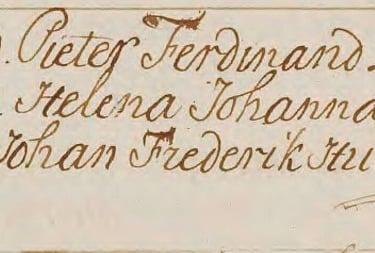 . Pieter Ferdinand.
. Helena Johanna
Johan Frederik Hu